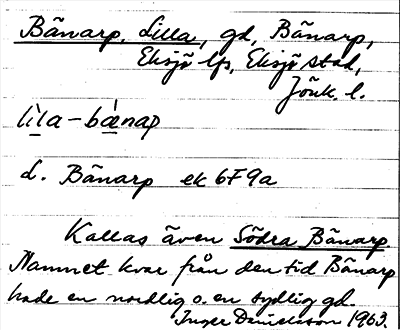 Bänarp, Lilla, gd, Bänarp,
Eksjö lfs, Eksjö stad,
Jönk. l.
lìla-bæ̀nap
L. Bänarp ek 6F9a
Kallas även Södra Bänarp
Namnet kvar från den tid Bänarp
hade en nordlig o. en sydlig gd.
Inger Danielsson 1963.